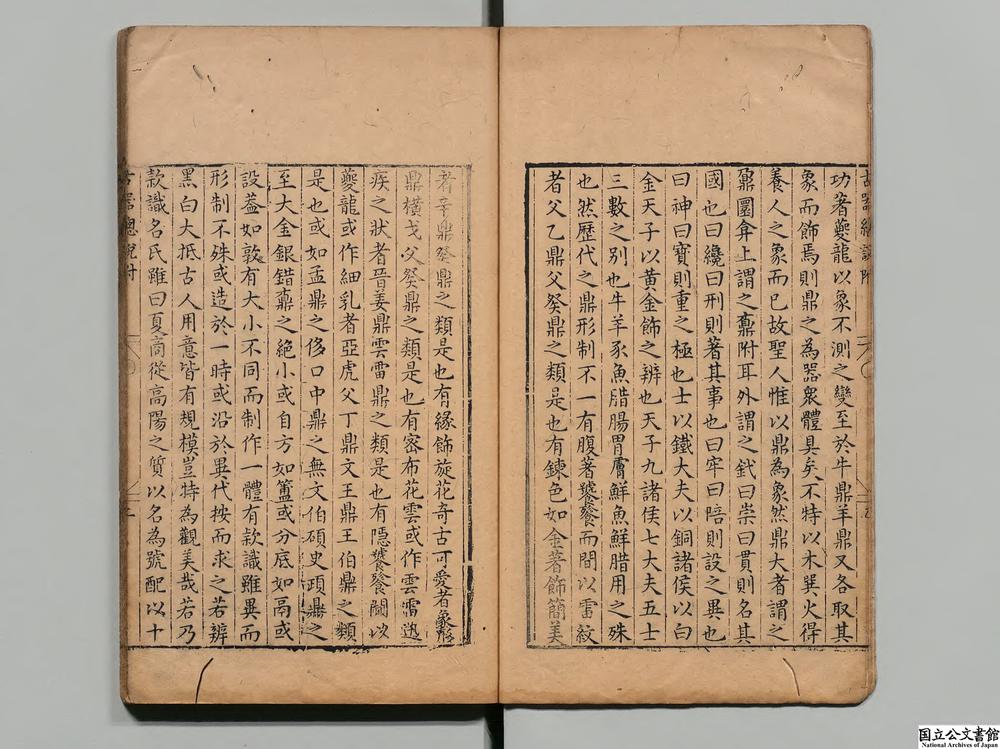 古器總說附
功著夔龍以象不測之變至於牛鼎羊鼎又各取其
象而飾焉則鼎之為器衆體具矣不特以木巽火得
養人之象而已故聖人惟以鼎為象然鼎大者謂之
鼐圜弇上謂之鼒附耳外謂之釴曰崇曰貫則名其
國也曰纔曰刑則著其事也曰牢曰陪則設之異也
曰神曰寶則重之極也士以鐵大夫以銅諸侯以白
金天子以黃金飾之辨也天子九諸侯七大夫五士
三數之別也牛羊豕魚腊腸胃膚鮮魚鮮腊用之殊
也然歷代之鼎形制不一有腹著饕餮而間以雷紋
者父乙鼎父癸鼎之類是也有鍊色如金著飾簡美
者辛鼎癸鼎之類是也有緣飾旋花奇古可愛者象形
鼎横戈父癸鼎之類是也有密布花雲或作雲雷迅
疾之狀者晉姜鼎雲雷鼎之類是也有隱饕餮間以
夔龍或作細乳者亞虎父丁鼎文王鼎王伯鼎之類
是也或如孟鼎之侈口中鼎之無文伯碩史頙鼎之
至大金銀錯鼐之絕小或自方如簠或分底如鬲或
設葢如敦有大小不同而制作一體有款識雖異而
形制不殊或造於一時或沿於異代按而求之若辨
黑白大抵古人用意皆有規模豈特為觀美哉若乃
款識名氏雖曰夏商從高陽之質以名為號配以十
古器總說附
国立公文書館
National Archives of Japan